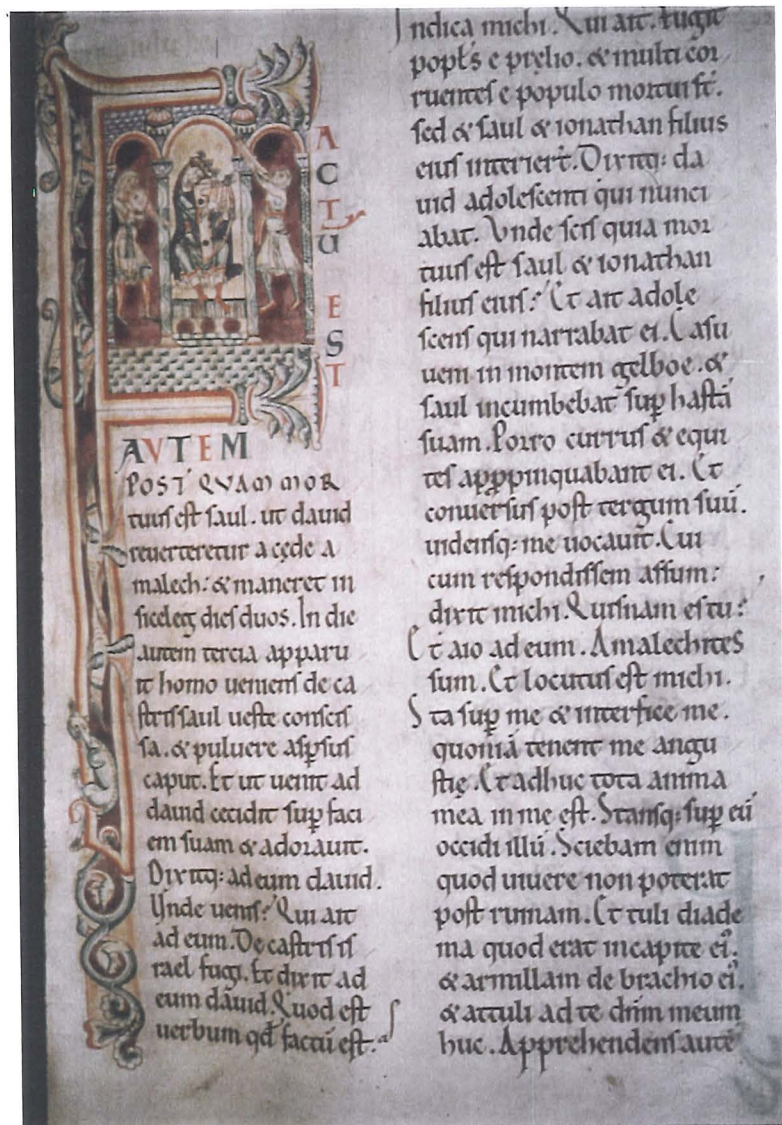 F
ACTU
EST
AUTEM
POST QVAM MOR
tuus est saul. ut dauid
reuerteretur a cede a
malech: & maneret in
siceleg dies duos. In die
autem tercia apparu
it homo ueniens de ca
stris saul ueste conscis
sa. & puluere aspsus
caput. Et ut uenit ad
dauid cecidit sup faci
em suam & adorauit.
Dixitq: ad eum dauid.
Unde uenis? Qui ait
ad eum. De castris is
rael fugi. Et dixit ad
eum dauid. Quod est
uerbum qd factu est.
Indica michi. Qui ait. Fugit
popl's e prelio. & multi cor
ruentes e populo mortui st.
sed & saul & ionathan filius
eius interiert. Dixitq: da
uid adolescenti qui nunci
abat. Vnde scis quia mor
tuus est saul & ionathan
filius eius? Et ait adole
scens qui narrabat ei. Casu
ueni in montem gelboe. &
saul incumbebat sup hastā
suam. Porro currus & equi
tes appropinquabant ei. Et
conuersus post tergum suū.
uidensq: me uocauit. Cui
cum respondissem assum:
dixit michi. Quisnam es tu?
Et aio ad eum. Amalechites
sum. Et locutus est michi.
Sta sup me & interfice me.
quoniā tenent me angu
stię. Et adhuc tota anima
mea in me est. Stansq: sup eū
occidi illū. Sciebam enim
quod uiuere non poterat
post ruinam. Et tuli diade
ma quod erat in capite ei'.
& armillam de brachio ei'.
& attuli ad te dnm meum
huc. Apprehendens autē